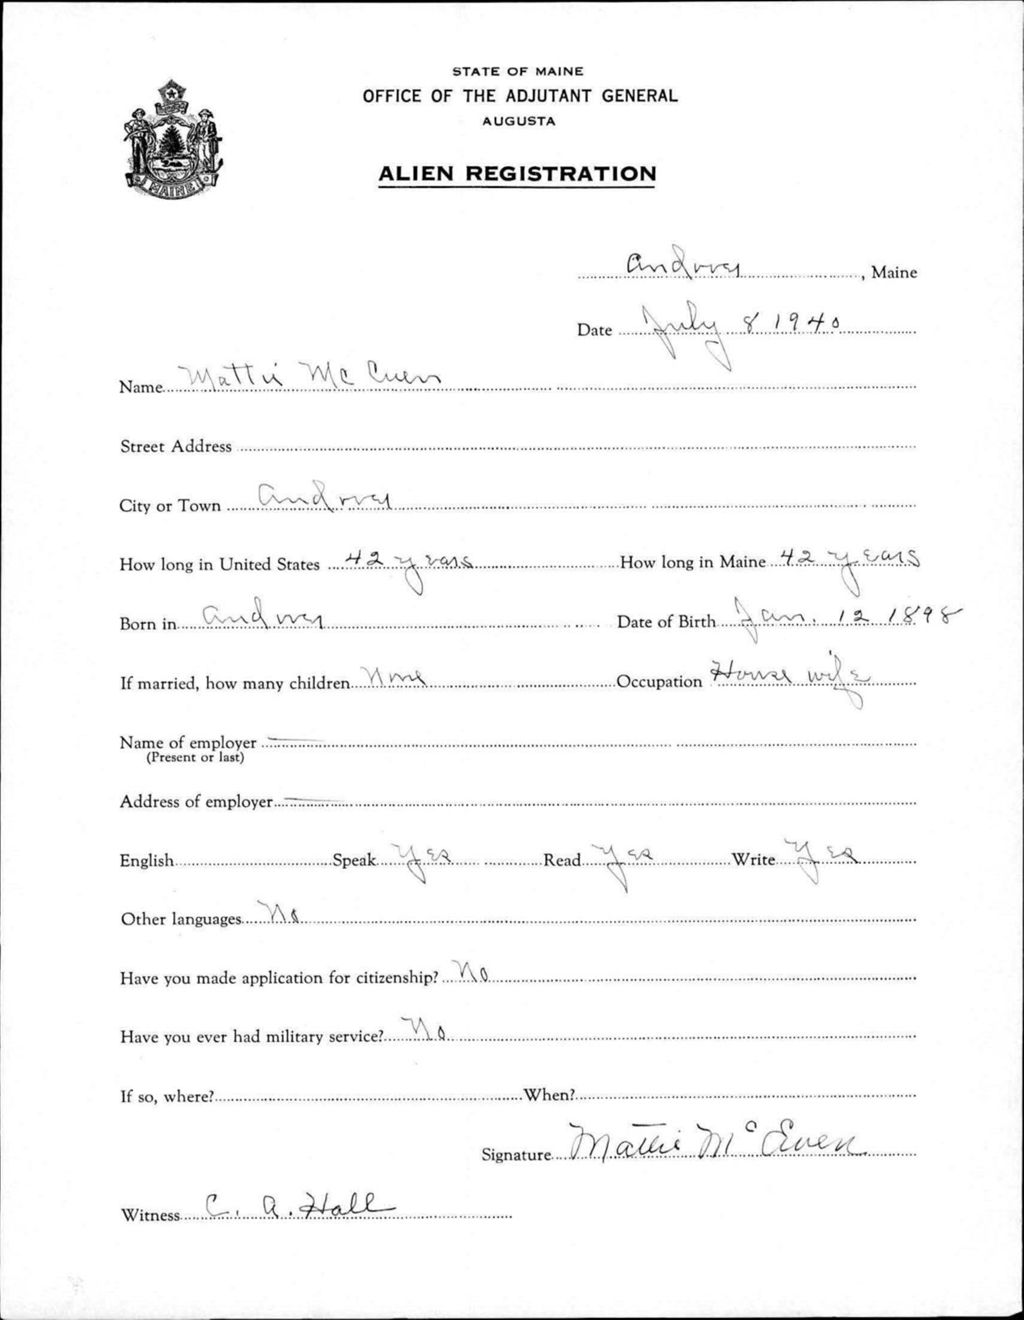 STATE OF MAINE
OFFICE OF THE ADJUTANT GENERAL
AUGUSTA
ALIEN REGISTRATION
MAINE
Andover, Maine
Date July 8 1940
Name Mattie McEwen
Street Address
City or Town Andover
How long in United States 42 years How long in Maine 42 years
Born in Andover Date of Birth Jan. 12 1898
If married, how many children None Occupation House wife
Name of employer —
(Present or last)
Address of employer —
English Speak Yes Read Yes Write Yes
Other languages No
Have you made application for citizenship? No
Have you ever had military service? No
If so, where? When?
Signature Mattie McEwen
Witness C. A. Hall